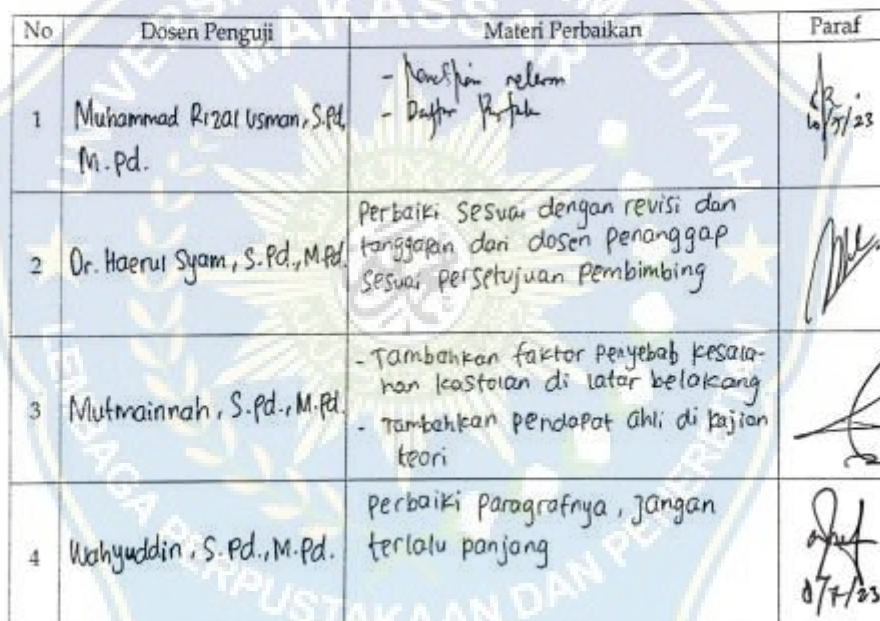 No Dosen Penguji Materi Perbaikan Paraf
1 Muhammad Rizal Usman, S.Pd,
M.Pd.
- Penelitian relevan
- Daftar Pustaka
10/7/23
2 Dr. Haerul Syam, S.Pd., M.Pd.
Perbaiki sesuai dengan revisi dan
tanggapan dari dosen penanggap
sesuai persetujuan pembimbing
3 Mutmainnah, S.Pd., M.Pd.
- Tambahkan faktor penyebab kesala-
han kastolan di latar belakang
- Tambahkan pendapat ahli di kajian
teori
4 Wahyuddin, S.Pd., M.Pd.
Perbaiki paragrafnya, jangan
terlalu panjang
MAKASSAR
LEMBAGA PERPUSTAKAAN DAN